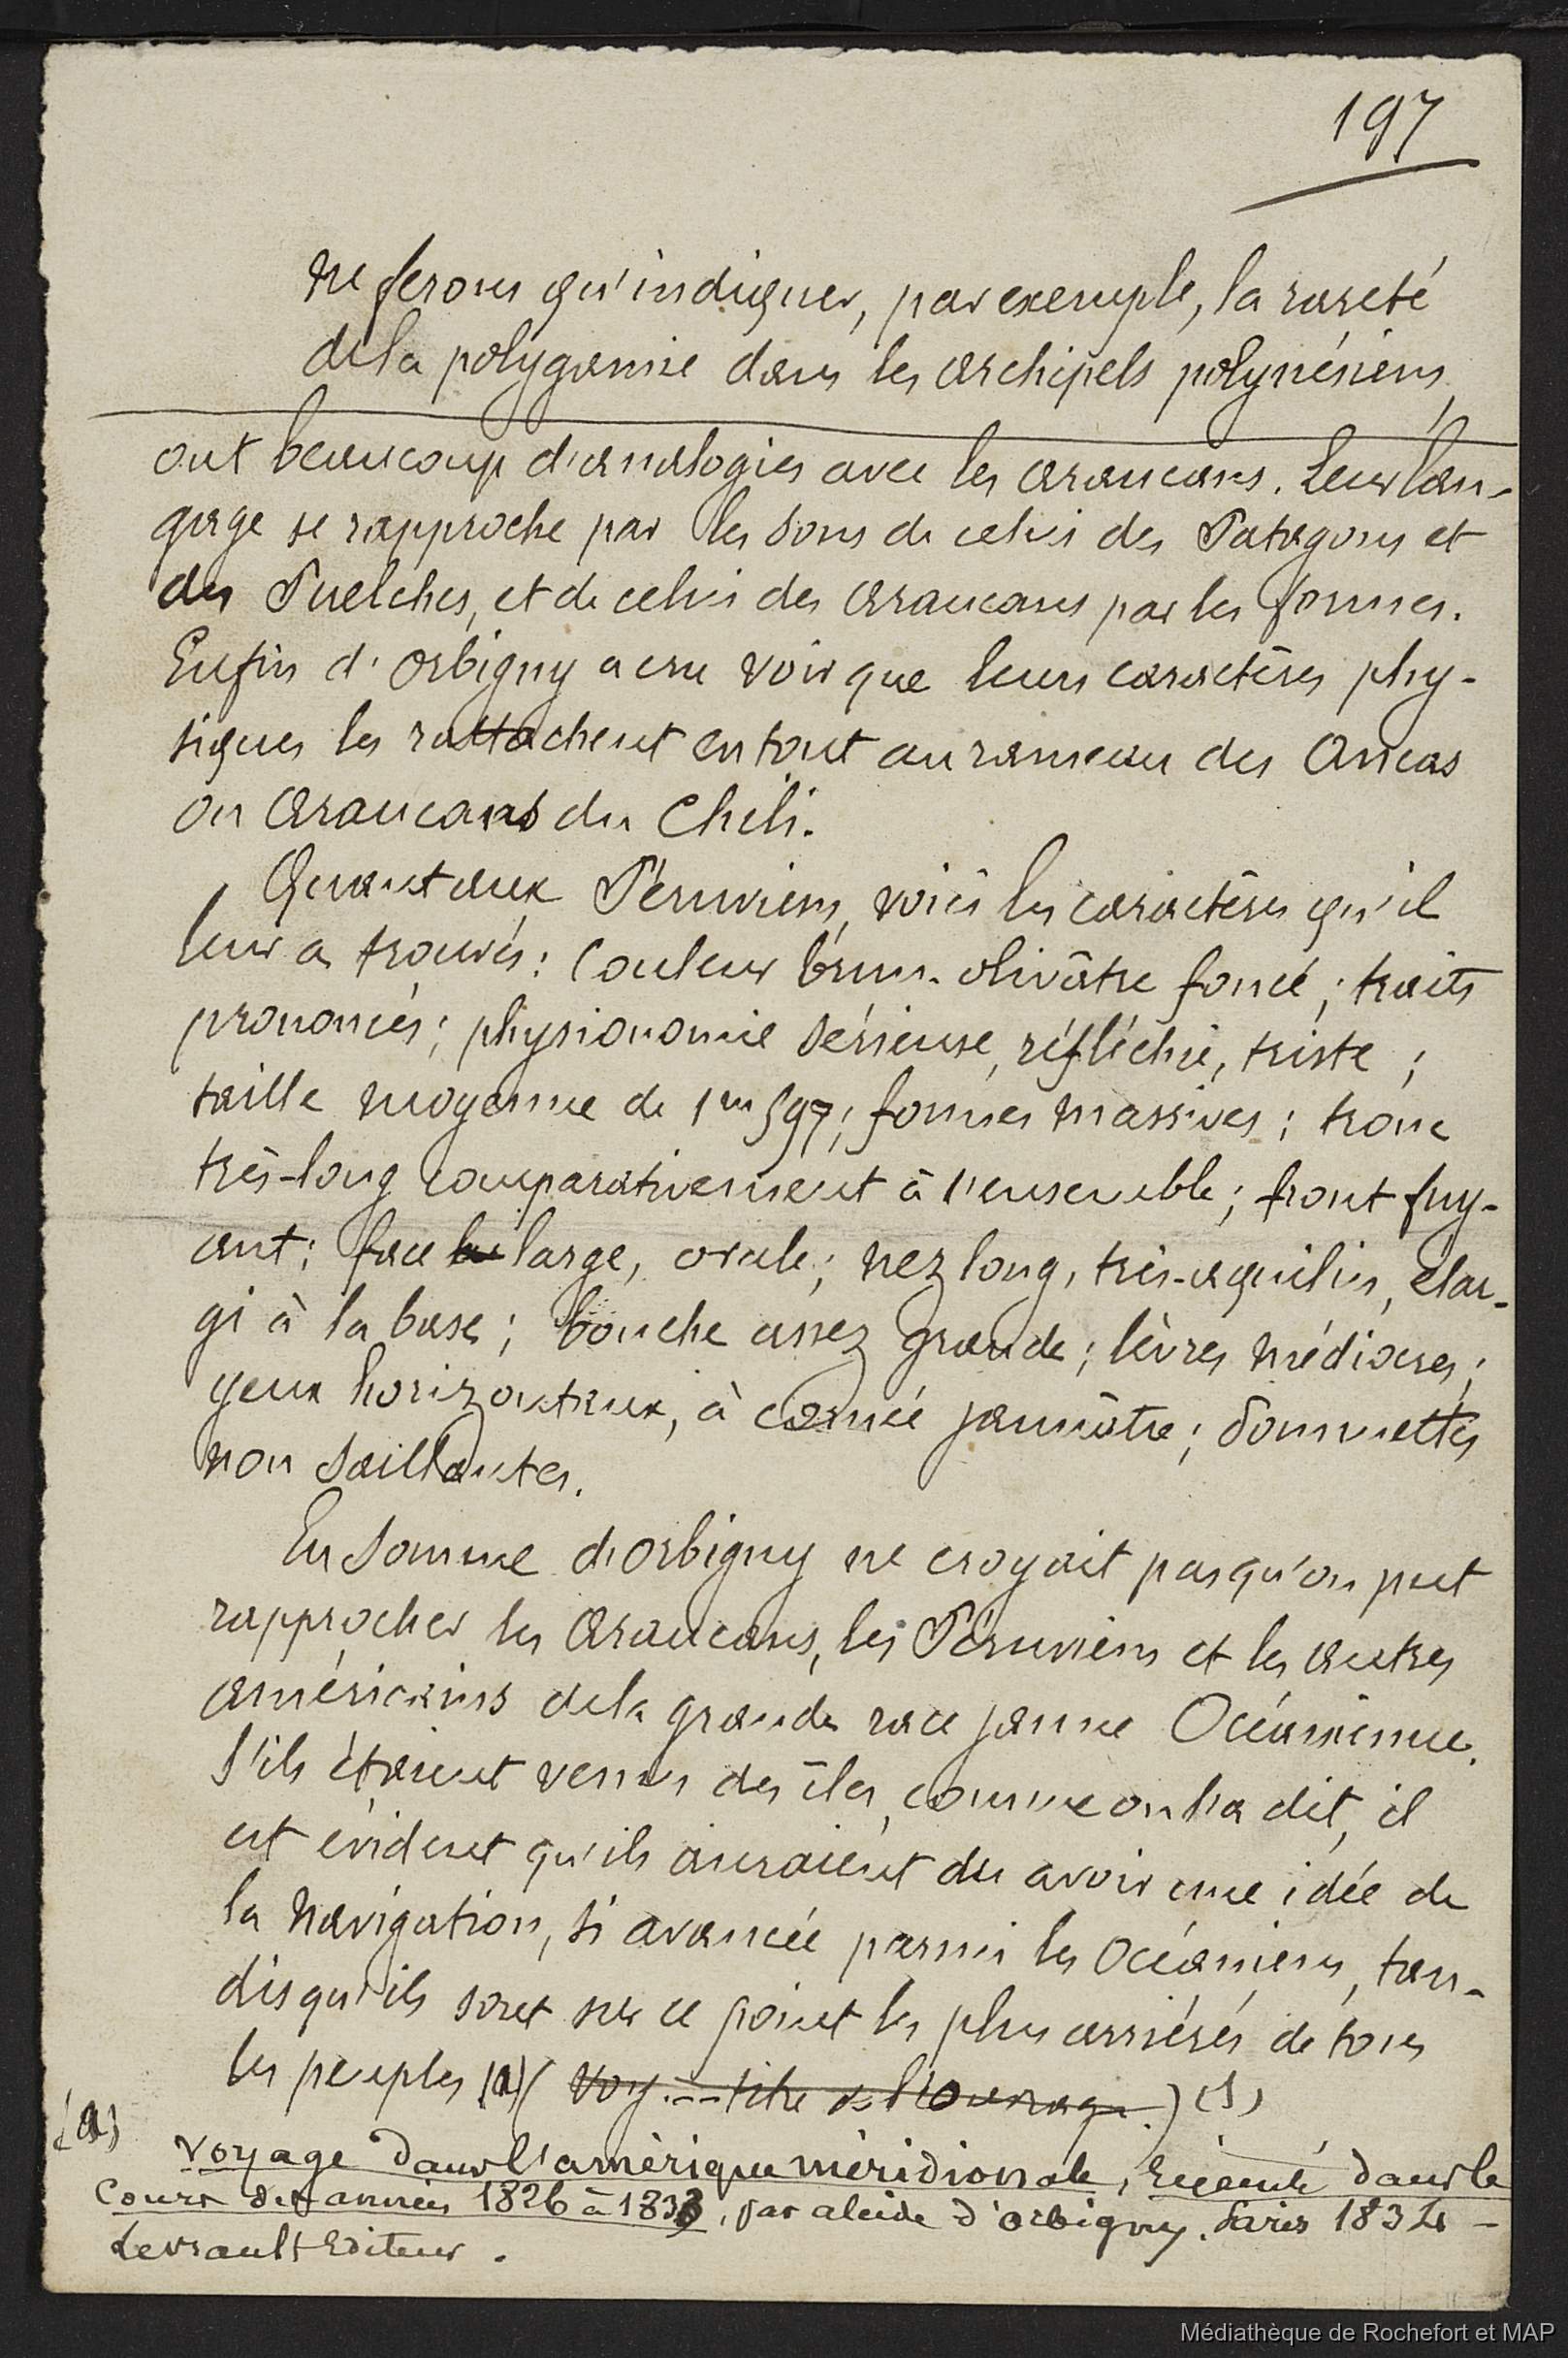 197
ne ferons qu'indiquer, par exemple, la rareté
de la polygamie dans les archipels polynésiens,
ont beaucoup d'analogies avec les araucans. Leur lan-
gage se rapproche par les sons de celui des Patagons et
des Puelches, et de celui des araucans par les formes.
Enfin d'Orbigny a cru voir que leurs caractères phy-
siques les rattachent en tout au rameau des Aucas
ou araucans du Chili.
Quant aux Péruviens, voici les caractères qu'il
leur a trouvés : Couleur brun-olivâtre foncé ; traits
prononcés ; physionomie sérieuse, réfléchie, triste ;
taille moyenne de 1m 597 ; formes massives ; tronc
très-long comparativement à l'ensemble ; front fuy-
ant ; face large, ovale ; nez long, très-aquilin, élar-
gi à la base ; bouche assez grande ; lèvres médiocres ;
yeux horizontaux, à cornée jaunâtre ; pommettes
non saillantes.
En somme d'Orbigny ne croyait pas qu'on put
rapprocher les Araucans, les Péruviens et les autres
américains de la grande race jaune Océanienne.
S'ils étaient venus des îles, comme on l'a dit, il
est évident qu'ils auraient du avoir une idée de
la navigation, si avancée parmi les Océaniens, tan-
disqu'ils sont sur ce point les plus arriérés de tous
les peuples (a) ( Voy. --- titre de l'ouvrage. ) (1)
(a)
Voyage dans l'amérique méridionale, Exécuté dans le
Cours des années 1826 à 1833, par alcide d'orbigny. Paris 1834 -
Levrault Editeur.
Médiathèque de Rochefort et MAP